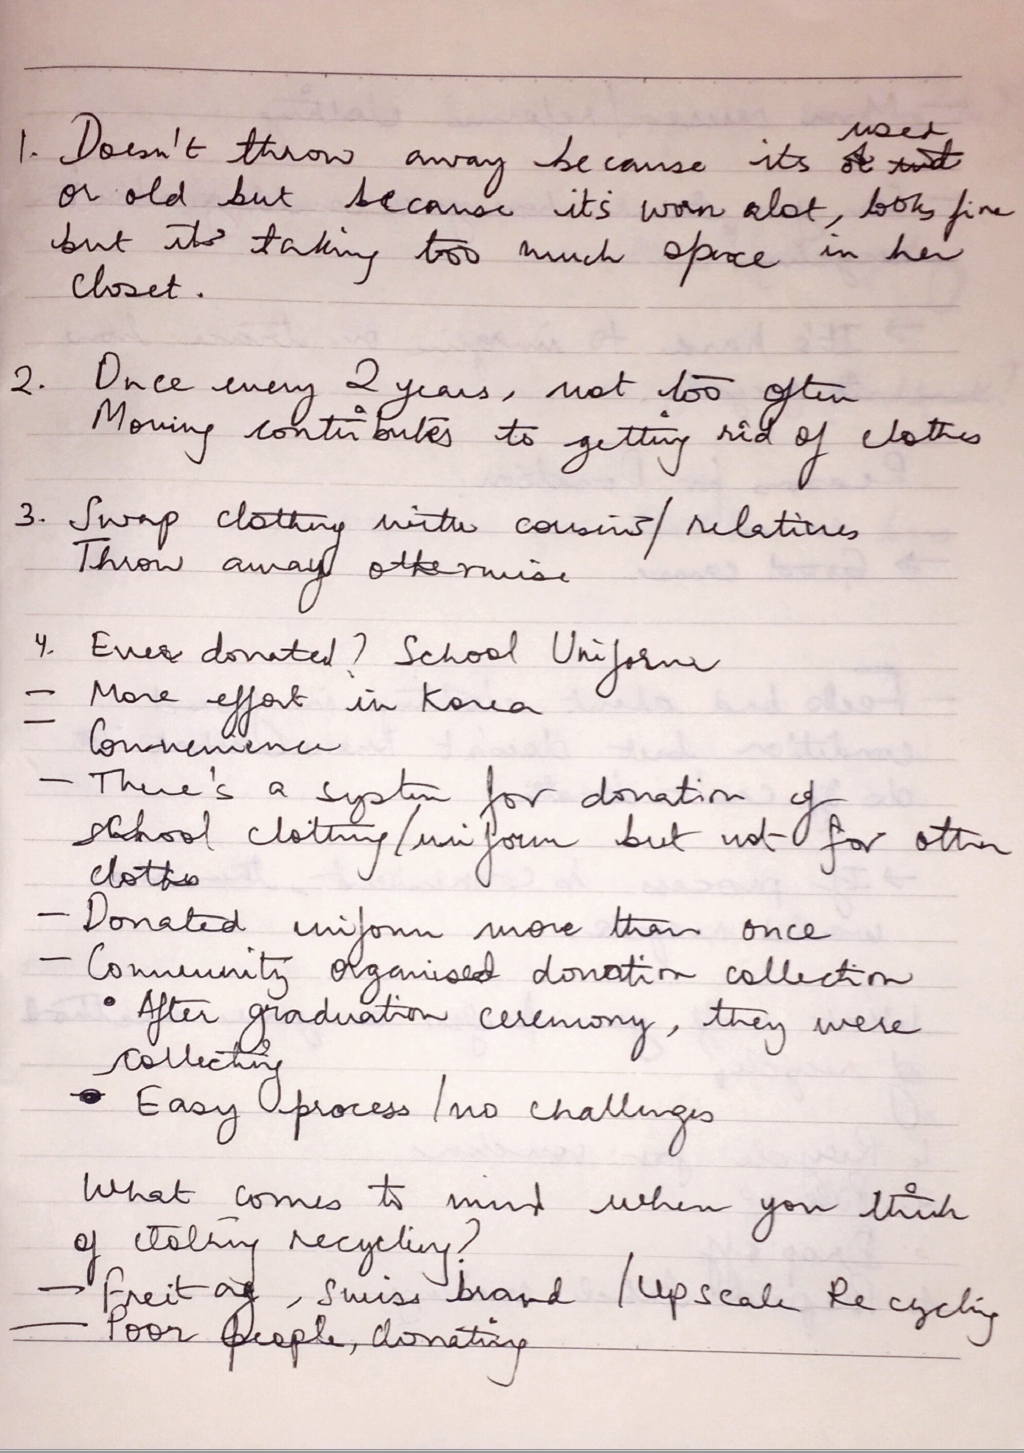 1. Doesn't throw away because its used
or old but because it's worn alot, looks fine
but its taking too much space in her
closet.
2. Once every 2 years, not too often
Moving contributes to getting rid of clothes
3. Swap clothing with cousins/relatives
Throw away otherwise
4. Ever donated? School Uniform
- More effort in Korea
- Convenience
- There's a system for donation of
school clothing/uniform but not for other
clothes
- Donated uniform more than once
- Community organised donation collection
• After graduation ceremony, they were
collecting
• Easy process/no challenges
What comes to mind when you think
of clothing recycling?
- Freitag, Swiss brand /Upscale Recycling
- Poor people, donating